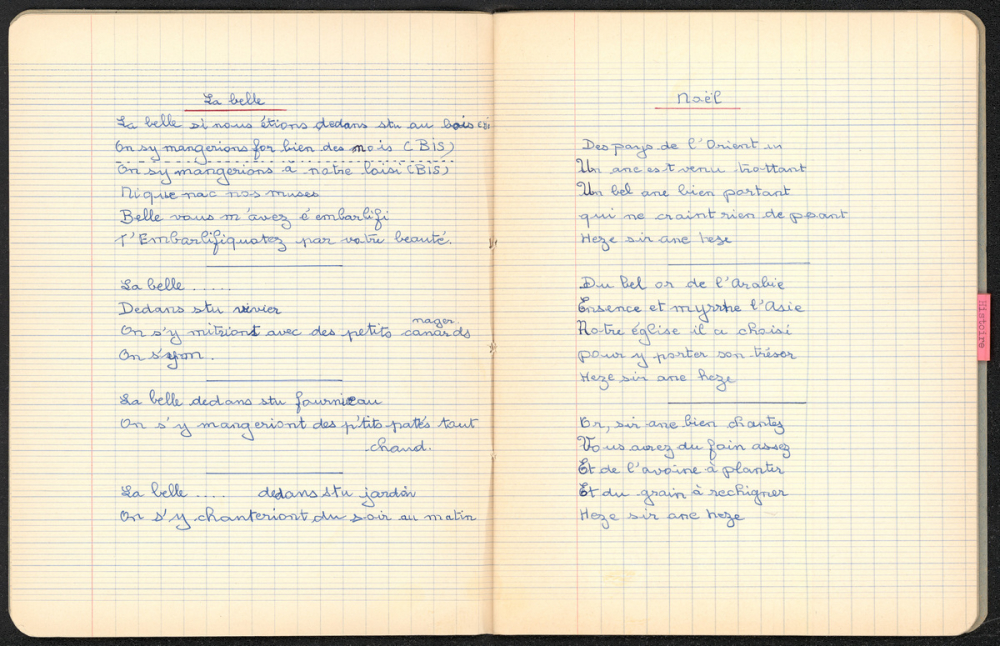 La belle
La belle si nous étions dedans stu au bois (Bi
On sy mangerions for bien des nois (BIS)
On sy mangerions à notre loisi (BIS)
Nique nac nos muses
Belle vous m'avez é embarlifi
T'Embarlifiquatez par votre beauté.
La belle .....
Dedans stu vivier
nager
On s'y mitriont avec des petits canards
On s'y .
La belle dedans stu fourniceau
On s'y mangeriont des p'tits patés tout
chaud.
La belle .... dedans stu jardin
On s'y chanteriont du soir au matin
Noël
Des pays de l'Orient un
Un ane est venu trottant
Un bel ane bien portant
qui ne craint rien de pesant
Heze sir ane heze
Du bel or de l'Arabie
Ensence et myrrhe l'Asie
Notre église il a choisi
pour y porter son trésor
Heze sir ane heze
Or, sir ane bien chantez
Vous aurez du foin assez
Et de l'avoine à planter
Et du grain à rechigner
Heze sir ane heze
Histoire